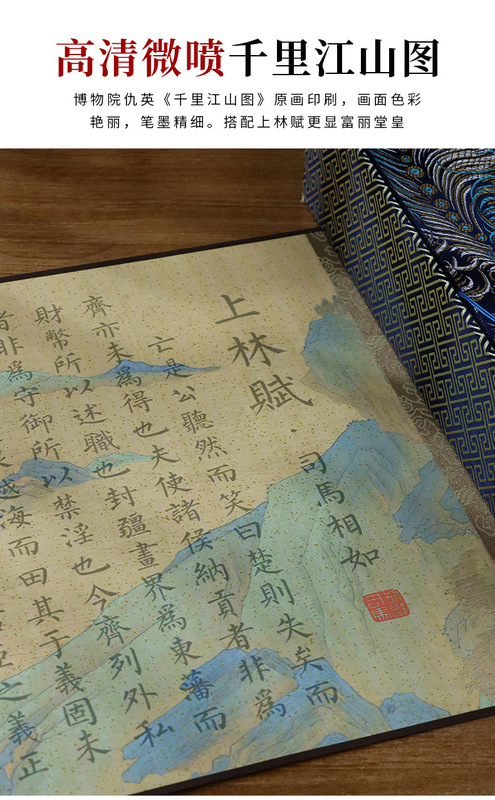 高清微喷千里江山图
博物院仇英《千里江山图》原画印刷，画面色彩
艳丽，笔墨精细。搭配上林赋更显富丽堂皇
上林賦
司馬相如
亡是公聽然而笑曰楚則失矣而
齊亦未為得也夫使諸侯納貢者非為
財幣所以述職也封疆畫界為東藩而
者非為守御所以禁淫也今齊列外私
海而田其于義固未
之義正